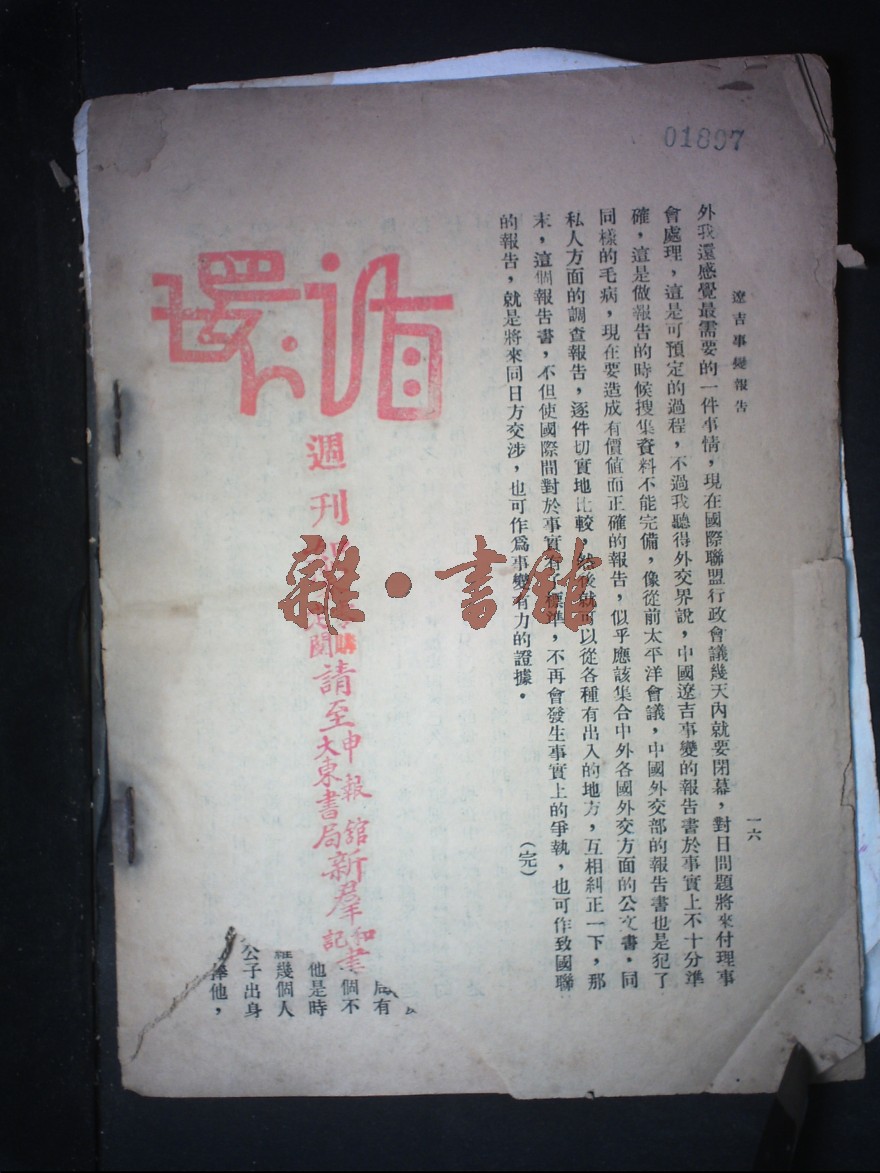 01897
遼吉事變報告
一六
外我還感覺最需要的一件事情，現在國際聯盟行政會議幾天內就要閉幕，對日問題將來付理事
會處理，這是可預定的過程，不過我聽得外交界說，中國遼吉事變的報告書於事實上不十分準
確，這是做報告的時候搜集資料不能完備，像從前太平洋會議，中國外交部的報告書也是犯了
同樣的毛病，現在要造成有價値而正確的報告，似乎應該集合中外各國外交方面的公文書，同
私人方面的調查報告，逐件切實地比較，然後就可以從各種有出入的地方，互相糾正一下，那
末，這個報告書，不但使國際間對於事實有了標準，不再會發生事實上的爭執，也可作致國聯
的報告，就是將來同日方交涉，也可作爲事變有力的證據。
（完）
循環
週刊
購
閱
請至
申報館
大東書局
新羣書
和記
局有
個不
他是時
幾個人
公子出身
他，
雜·書館